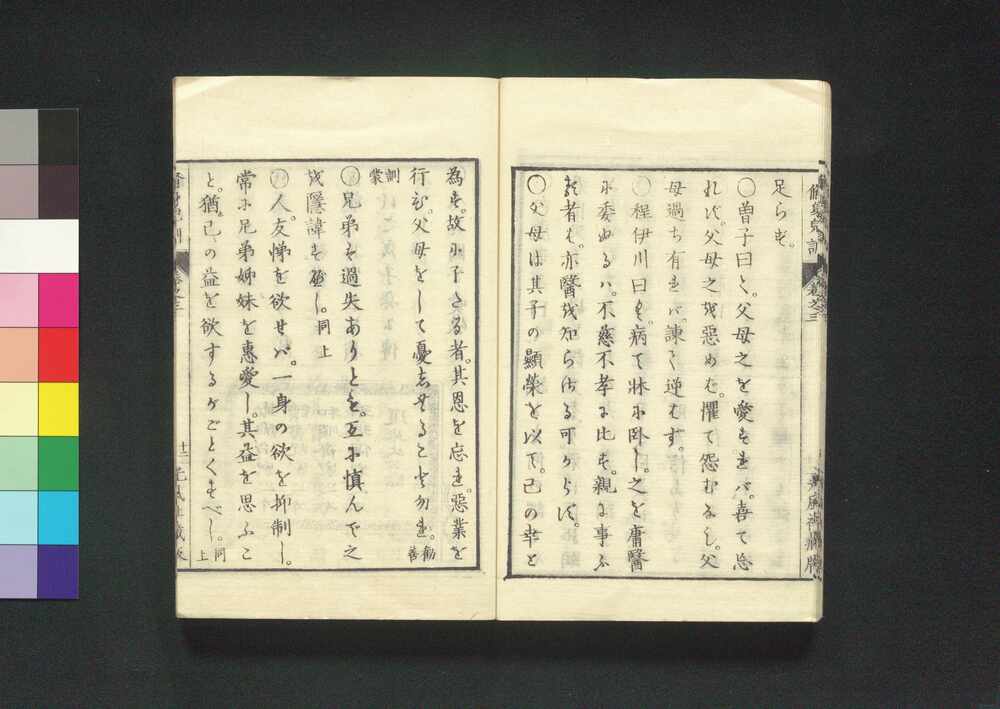 修身児訓
足らず。
○曽子曰く。父母之を愛すれバ。喜て忘
れず。父母之を惡めむ。懼て怨むなし。父
母過ち有れバ。諌て逆むず。
○程伊川曰く。病て牀に卧し。之を庸醫
に委ぬるハ。不慈不孝に比す。親に事ふ
る者も。亦醫を知らざる可からず。
○父母は其子の顯榮を以て。己の幸と
為す。故に子たる者。其恩を忘れ。惡業を
行ひ。父母をして憂へしむることなかれ。勧善
訓蒙
○兄弟を過失ありとも。互に慎んで之
を隱諱すべし。同上
○人。友悌を欲せバ。一身の欲を抑制し。
常に兄弟姉妹を惠愛し。其益を思ふこ
と。猶。己の益を欲するがごとくすべし。同上
十三